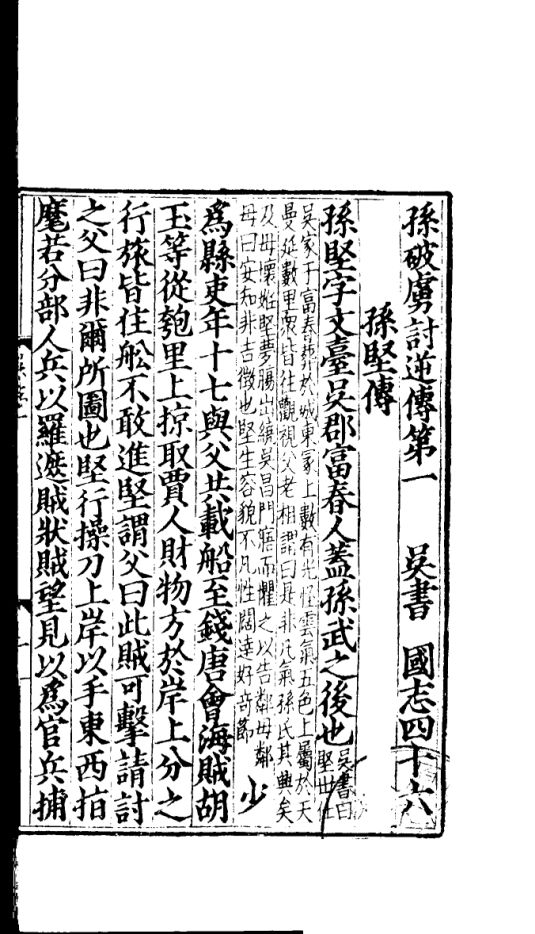 孫破虜討逆傳第一 吳書 國志四十六
孫堅傳
孫堅字文臺吳郡富春人蓋孫武之後也吳書曰堅世仕
吳家于富春葬於城東冢上數有光怪雲氣五色上屬於天
曼延數里衆皆往觀視父老相謂曰是非凡氣孫氏其興矣
及母懷姙堅夢腸出繞吳昌門寤而懼之以告鄰母鄰
母曰安知非吉徵也堅生容貌不凡性闊達好奇節
少
爲縣吏年十七與父共載船至錢唐會海賊胡
玉等從匏里上掠取賈人財物方於岸上分之
行旅皆住舩不敢進堅謂父曰此賊可擊請討
之父曰非爾所圖也堅行操刀上岸以手東西指
麾若分部人兵以羅遮賊狀賊望見以爲官兵捕